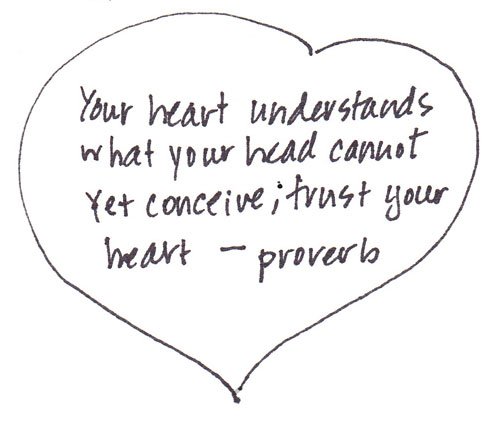 Your heart understands
what your head cannot
yet conceive; trust your
heart – proverb